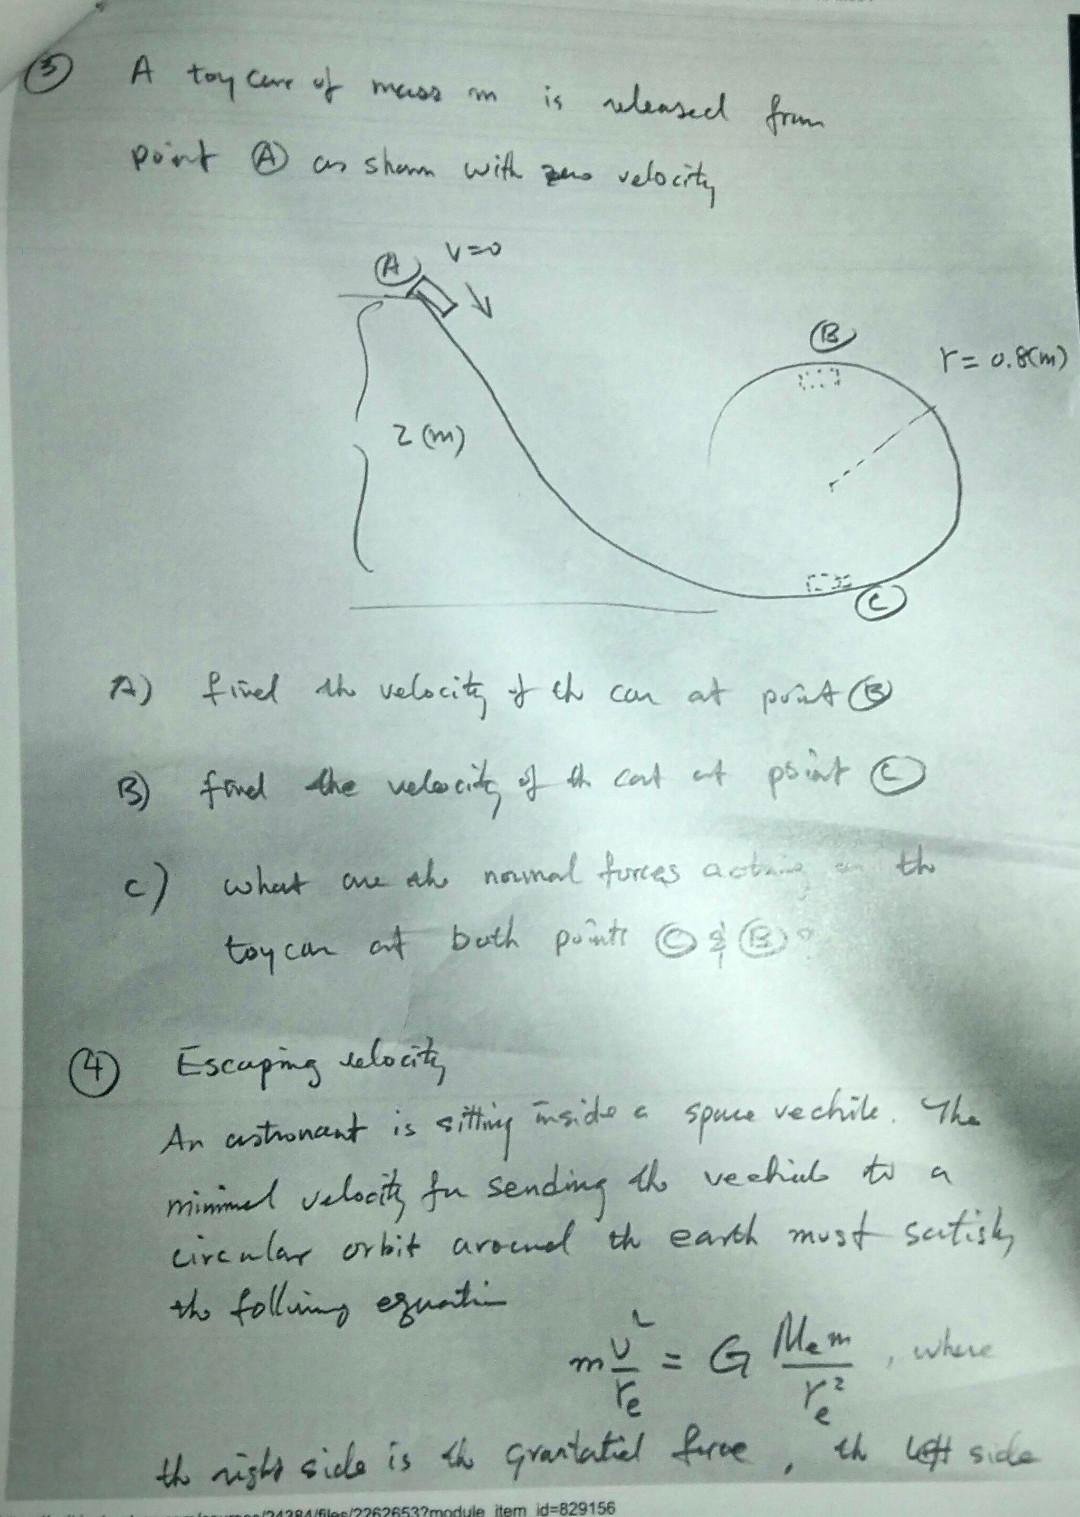 ③ A toy car of mass m is released from
point Ⓐ as shown with zero velocity
Ⓐ V=0
Ⓑ
r = 0.8(m)
2 (m)
Ⓒ
A) find the velocity of the car at point Ⓑ
B) find the velocity of the cart at point Ⓒ
C) what are the normal forces acting on the
toy car at both points Ⓒ & Ⓑ?
④ Escaping velocity
An astronaut is sitting inside a space vechile. The
minimal velocity for sending the vechicle to a
circular orbit around the earth must satisfy
the following equation
m v²/rₑ = G Mₑm/rₑ², where
the right side is the force, the left side
24384/files/22626537module_item_id=829156